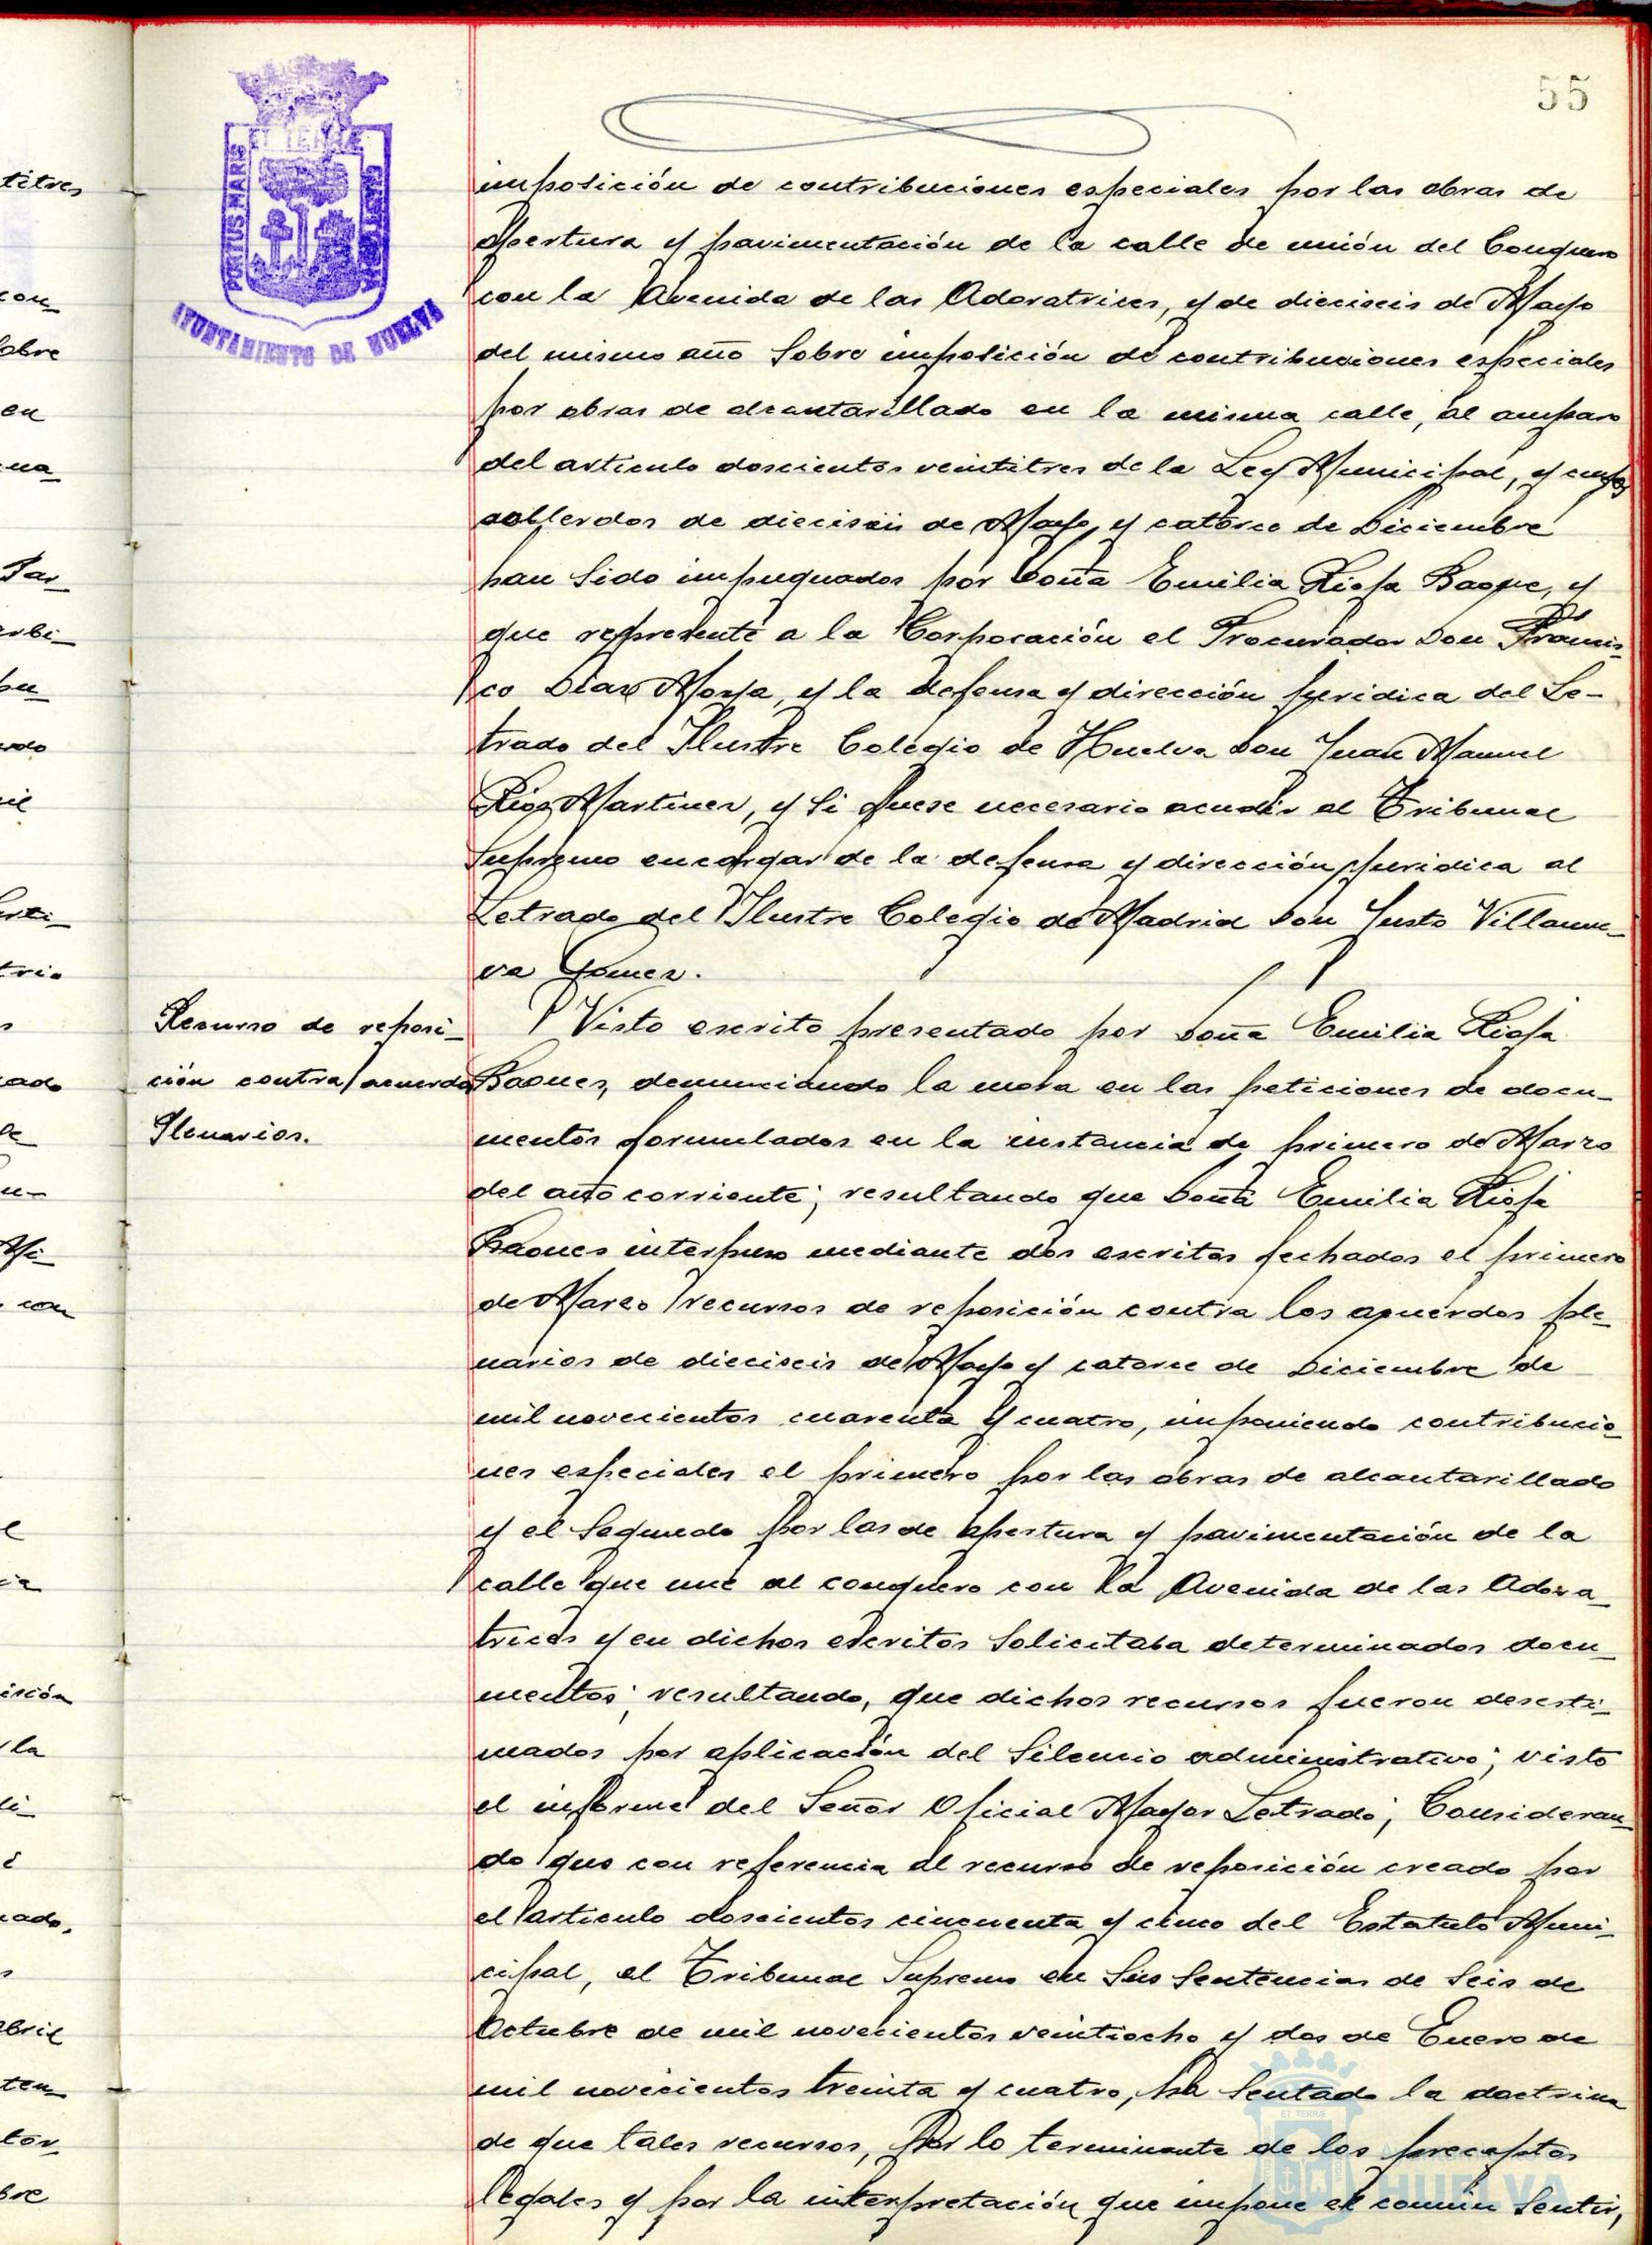 55
ET TERRÆ
PORTUS MARIS
CUSTODIA
AYUNTAMIENTO DE HUELVA
imposición de contribuciones especiales por las obras de
apertura y pavimentación de la calle de unión del Conquero
con la Avenida de las Adoratrices, y de dieciseis de Mayo
del mismo año sobre imposición de contribuciones especiales
por obras de alcantarillado en la misma calle, al amparo
del articulo doscientos veintitres de la Ley Municipal, y cuyos
acuerdos de dieciseis de Mayo, y catorce de Diciembre
han sido impugnados por Doña Emilia Rioja Baque, y
que represente a la Corporación el Procurador Don Francis-
co Díaz Moya, y la defensa y dirección juridica del Le-
trado del Ilustre Colegio de Huelva Don Juan Manuel
Martinez, y si fuese necesario acudir al Tribunal
Supremo encargar de la defensa y dirección juridica al
Letrado del Ilustre Colegio de Madrid Don Justo Villanue-
va Gomez.
Recurso de reposi-
ción contra acuerdos
Plenarios.
Visto escrito presentado por Doña Emilia Rioja
Baques, denunciando la mora en las peticiones de docu-
mentos formulados en la instancia de primero de Marzo
del año corriente; resultando que Doña Emilia Rioja
Baques interpuso mediante dos escritos fechados el primero
de Marzo recursos de reposición contra los acuerdos ple-
narios de dieciseis de Mayo y catorce de Diciembre de
mil novecientos cuarenta y cuatro, imponiendo contribucio-
nes especiales el primero por las obras de alcantarillado
y el segundo por las de apertura y pavimentación de la
calle que une al conquero con la Avenida de las Adora-
trices y en dichos escritos solicitaba determinados docu-
mentos; resultando, que dichos recursos fueron desesti-
mados por aplicación del silencio administrativo; visto
el informe del Señor Oficial Mayor Letrado; Consideran-
do que con referencia al recurso de reposición creado por
el articulo doscientos cincuenta y cinco del Estatuto Muni-
cipal, el Tribunal Supremo en sus sentencias de seis de
Octubre de mil novecientos veintiocho y dos de Enero de
mil novecientos treinta y cuatro, ha sentado la doctrina
de que tales recursos, por lo terminante de los preceptos
legales y por la interpretación que impone el común sentir,
HUELVA